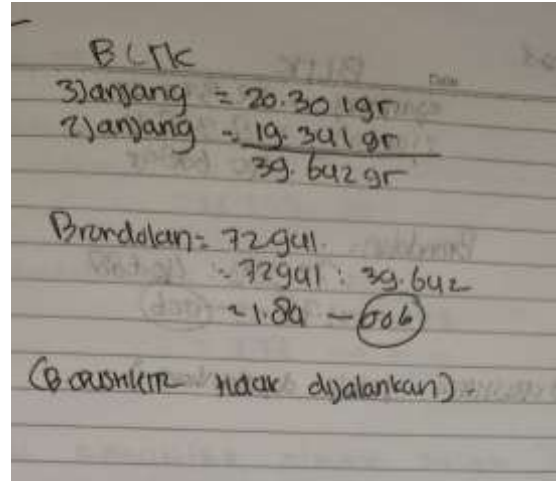 BLTK
3) anjang = 20.301gr
2) anjang = 19.341gr
39.642gr
Brondolan = 72941.
= 72941 : 39.642
= 1.84 —
( tidak dijalankan).